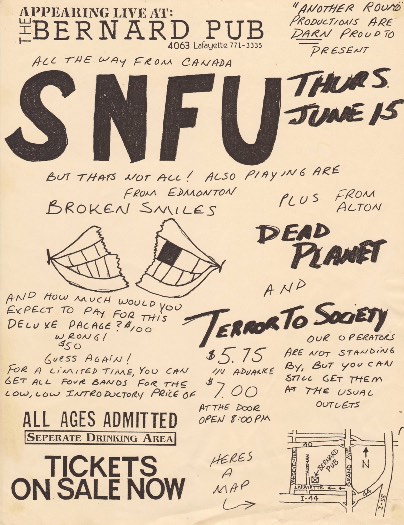 APPEARING LIVE AT:
THE BERNARD PUB
4063 Lafayette 771-3335
"ANOTHER ROUND
PRODUCTIONS ARE
DARN PROUD TO
PRESENT
ALL THE WAY FROM CANADA
SNFU
THURS.
JUNE 15
BUT THATS NOT ALL! ALSO PLAYING ARE
FROM EDMONTON
BROKEN SMILES
PLUS FROM
ALTON
DEAD
PLANET
AND
TERROR TO SOCIETY
AND HOW MUCH WOULD YOU
EXPECT TO PAY FOR THIS
DELUXE PACAGE? $100
WRONG!
$50
GUESS AGAIN!
FOR A LIMITED TIME, YOU CAN
GET ALL FOUR BANDS FOR THE
LOW, LOW INTRODUCTORY PRICE OF
$5.75
IN ADVANCE
$7.00
AT THE DOOR
OPEN 8:00PM
OUR OPERATORS
ARE NOT STANDING
BY, BUT YOU CAN
STILL GET THEM
AT THE USUAL
OUTLETS
ALL AGES ADMITTED
SEPERATE DRINKING AREA
TICKETS
ON SALE NOW
HERES
A
MAP
40
N
BERNARD
PUB
LAFAYETTE
I-44